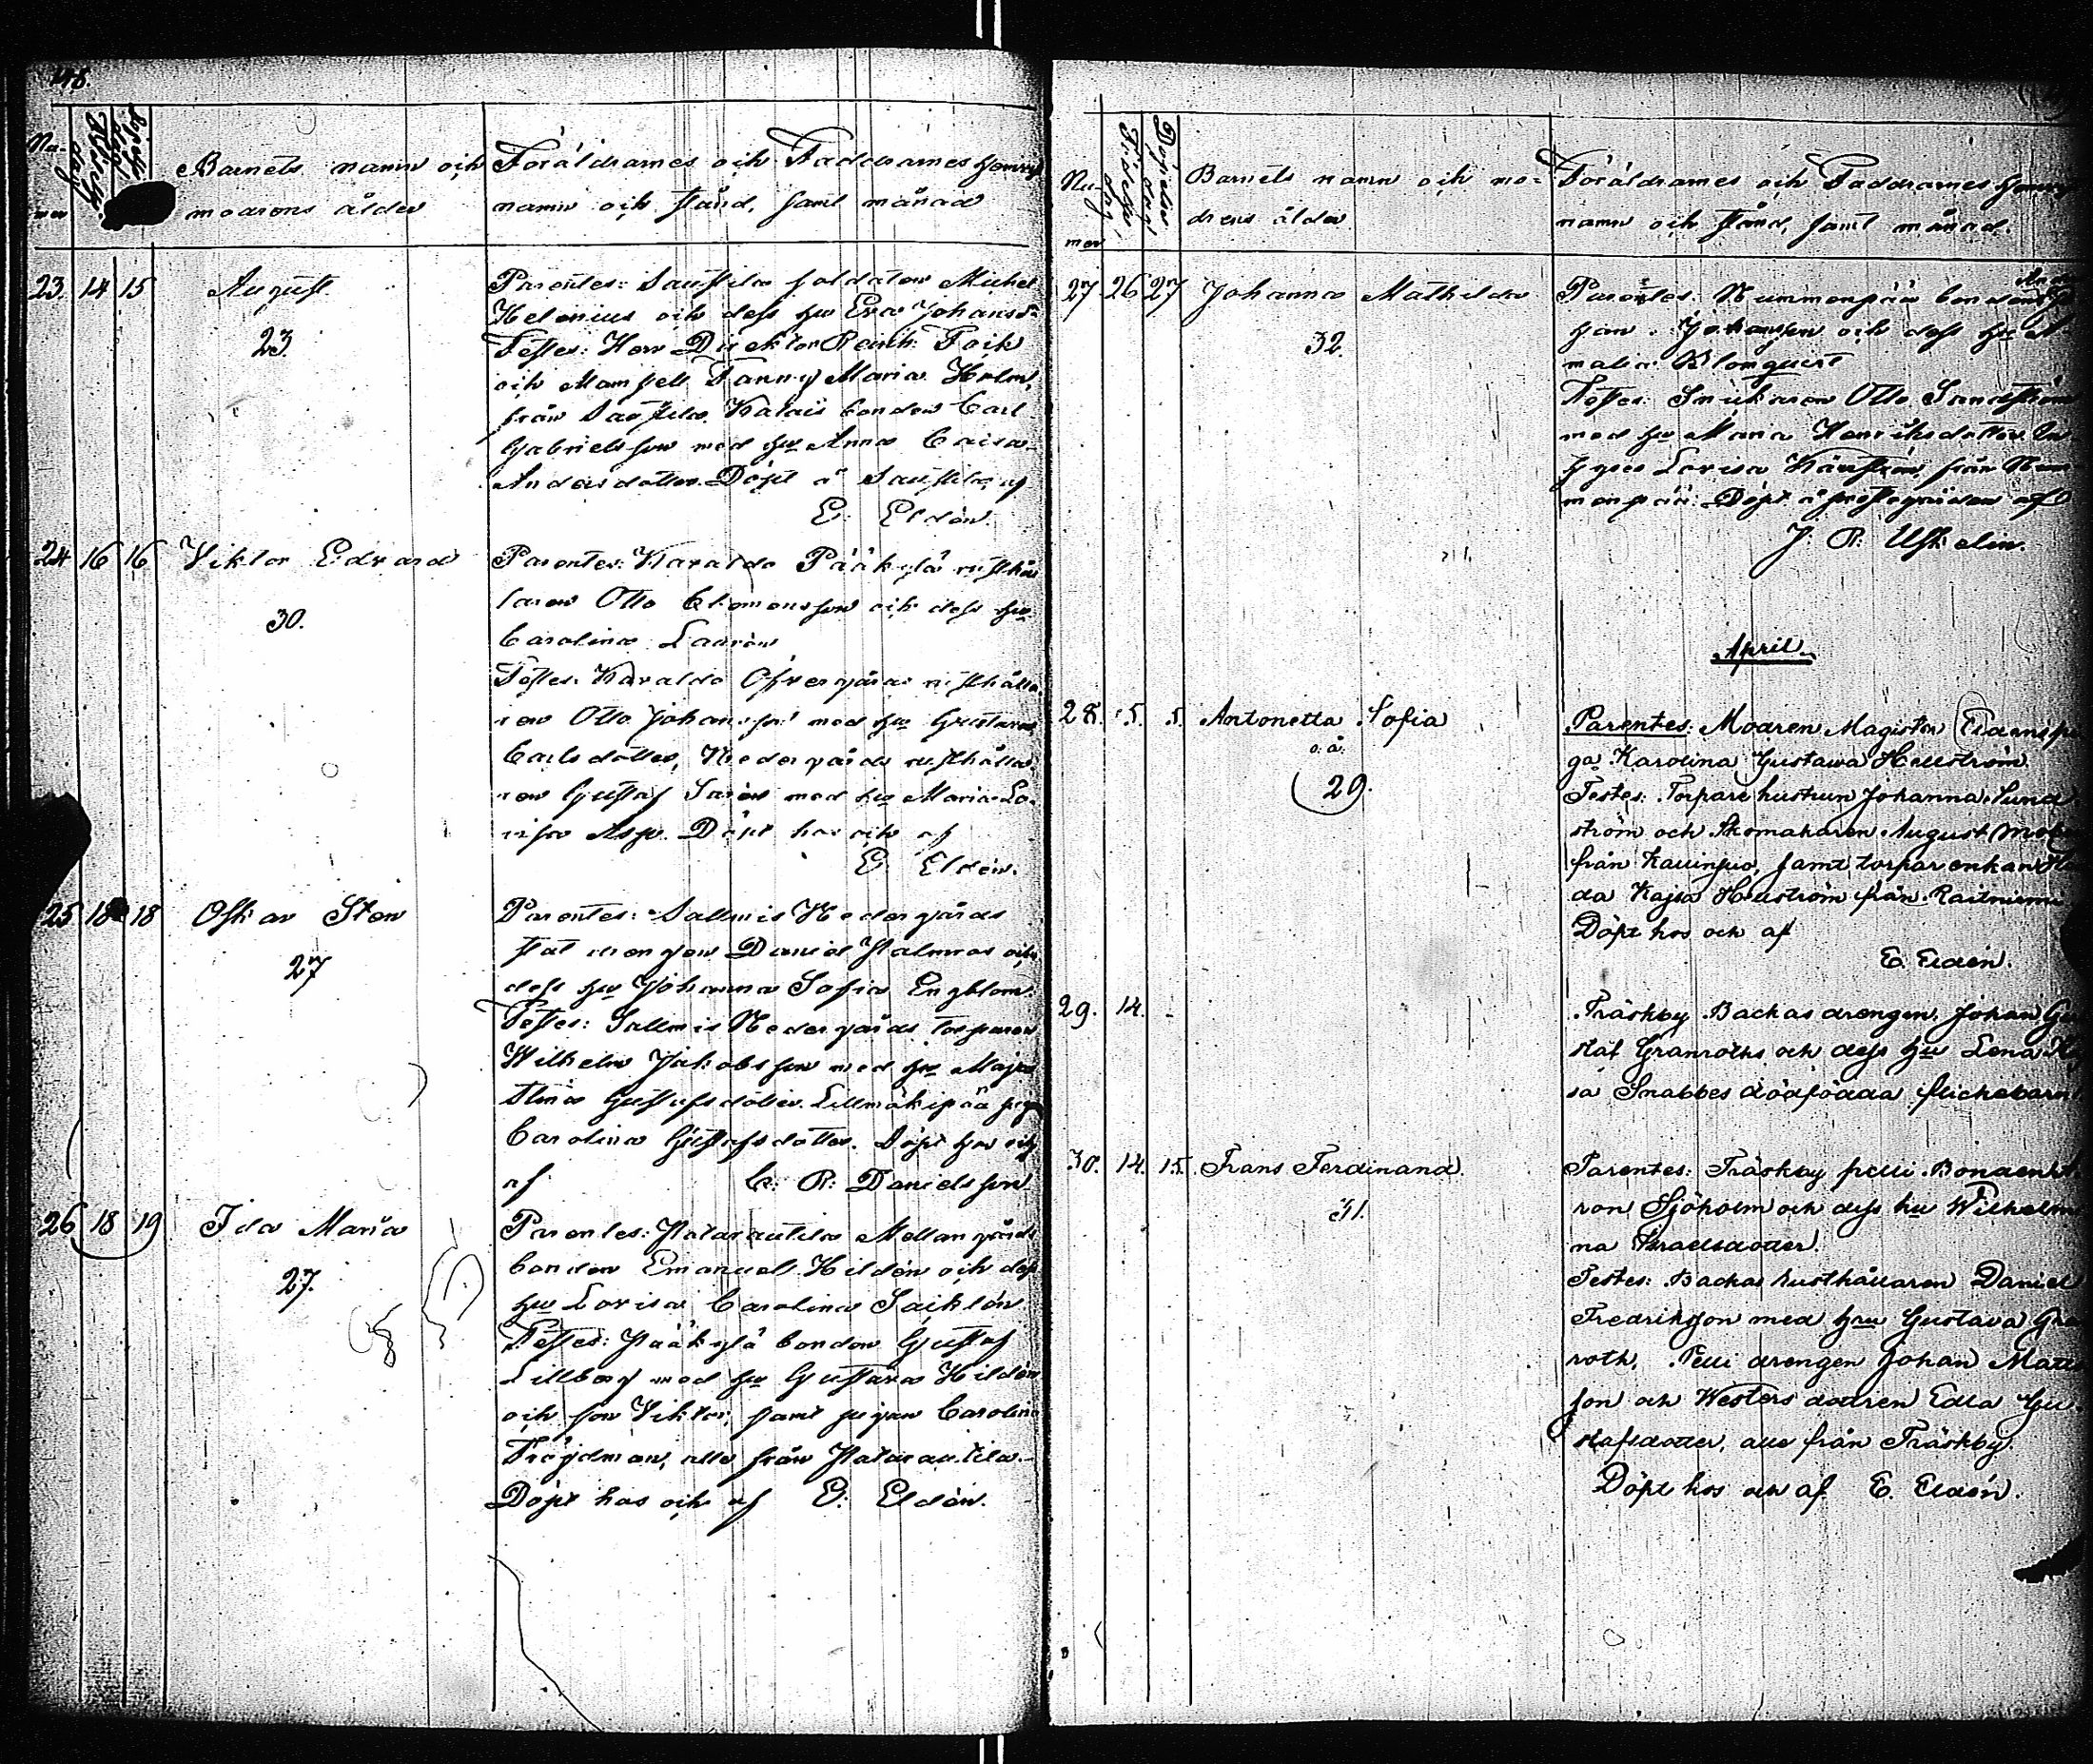 48.
Nu-
mer
Barnets namn och
modrens ålder
Föräldrarnes och Faddrarnes hemvist
namn och stånd, samt månad
23. 14 15 August
23.
Parentes: Saustila soldaten Michel
Helenius och dess hu Eva Johansd
Testes: Herr Direktor Reinh: Foik
och Mamsell Fanny Maria Holm,
från Saustila Katais bonden Carl
Gabrielsson med hu Anna Caisa
Andersdotter. Döpt å Saustila af
E: Eldén.
24 16 16 Viktor Edvard
30.
Parentes: Haraldo Pääkylä rusthål
laren Otto Clemensson och dess hu
Carolina Laurén
Testes: Haraldo Öfvergårds rusthålla
ren Otto Johansson med hu Gustava
Carlsdotter, Nedergårds rusthålla-
ren Gustaf Sarén med hu Maria Lo-
visa Asp. Döpt hos och af
E. Eldén.
25 18 18 Oskar Sten
27
Parentes: Sallmis Nedergårds
statdrengen Daniel Palmros och
dess hu Johanna Sofia Engblom.
Testes: Sallmis Nedergårds torparen
Wilhelm Jakobsson med hu Maja
Stina Gustafsdotter. Lillmäkipää piga
Carolina Gustafsdotter. Döpt hos och
af C: R: Danielsson
26 18 19 Ida Maria
27.
Parentes: Patarautila Mellangårds
bonden Emanuel Hildén och dess
hu Lovisa Carolina Saiklén
Testes: Pääkylä bonden Gustaf
Lillberg med hu Gustava Hildén
och son Viktor, samt pigan Carolina
Fröjdman, alla från Patarautila.
Döpt hos och af E: Eldén.
Nu-
mer
Födelse
dag
Döpelse
dag
Barnets namn och mo-
drens ålder
Föräldrarnes och Faddrarnes hemvist
namn och stånd, samt månad.
27 26 27 Johanna Mathilda
32.
Parentes: Nummenpää bonden
Johansson och dess hu A
malia Blomquist
Testes: Snickaren Otto Sandström
med hu Maria Henriksdotter
Lovisa Känström, från Num
menpää: Döpt å prestegården af
J: R: Uschelin.
April.
28. 5. 5. Antonetta Sofia
o. ä.
29.
Parentes: Moaren Magister
ga Karolina Gustawa Hellström.
Testes: Torpare hustrun Johanna Lund
ström och Skomakaren August
från Kauinpuo, samt torpar enkan
da Kajsa Hellström från Raitniemi
Döpt hos och af
E. Eldén.
29. 14. -
Träskby Backas drengen Johan Gu
staf Granroths och dess hu Lena Kaj
sa Snabbes dödfödda flickebarn
30. 14. 15. Frans Ferdinand.
31.
Parentes: Träskby Pelli Bonden
ron Sjöholm och dess hu Wilhelmi
na Israelsdotter.
Testes: Backas rusthållaren Daniel
Fredriksson med hu Gustava Gran
roth, Pelli drengen Johan Matts
son och Westers dottren Edla Gu
stafsdotter, alle från Träskby.
Döpt hos och af E. Eldén.